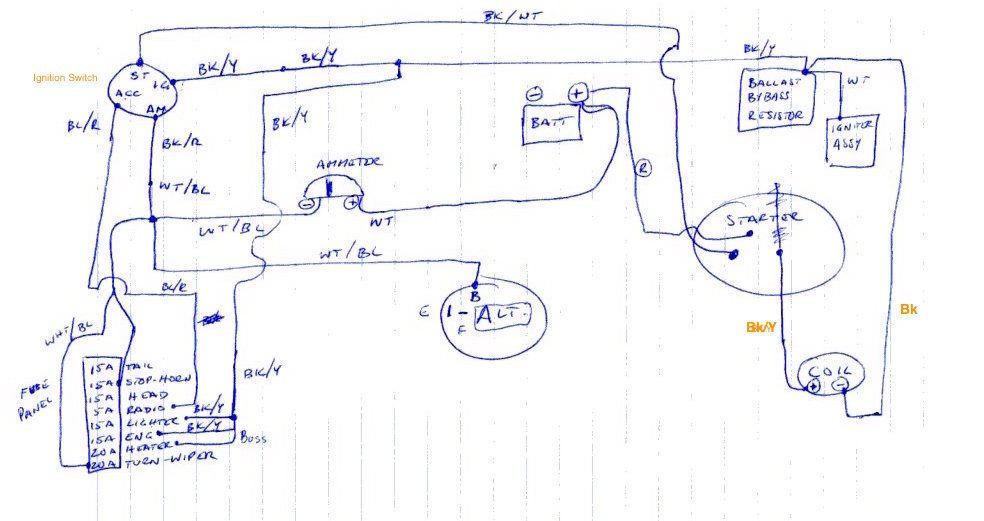 BK/WT
Ignition Switch
ST
IG
ACC
AM
BK/Y
BK/Y
BL/R
BK/R
BK/Y
WT/BL
AMMETOR
- +
WT
WT/BL
WT/BL
- +
BATT
R
BALLAST
BYBASS
RESISTOR
WT
IGNITER
ASSY
STARTER
B
E
F
ALT.
BL/R
WHT/BL
BK/Y
Bk/Y
Bk
COIL
+ -
FUSE
PANEL
15A TAIL
15A STOP-HORN
15A HEAD
5A RADIO
15A LIGHTER
15A ENG
20A HEATER
20A TURN-WIPER
BK/Y
BK/Y
Buss